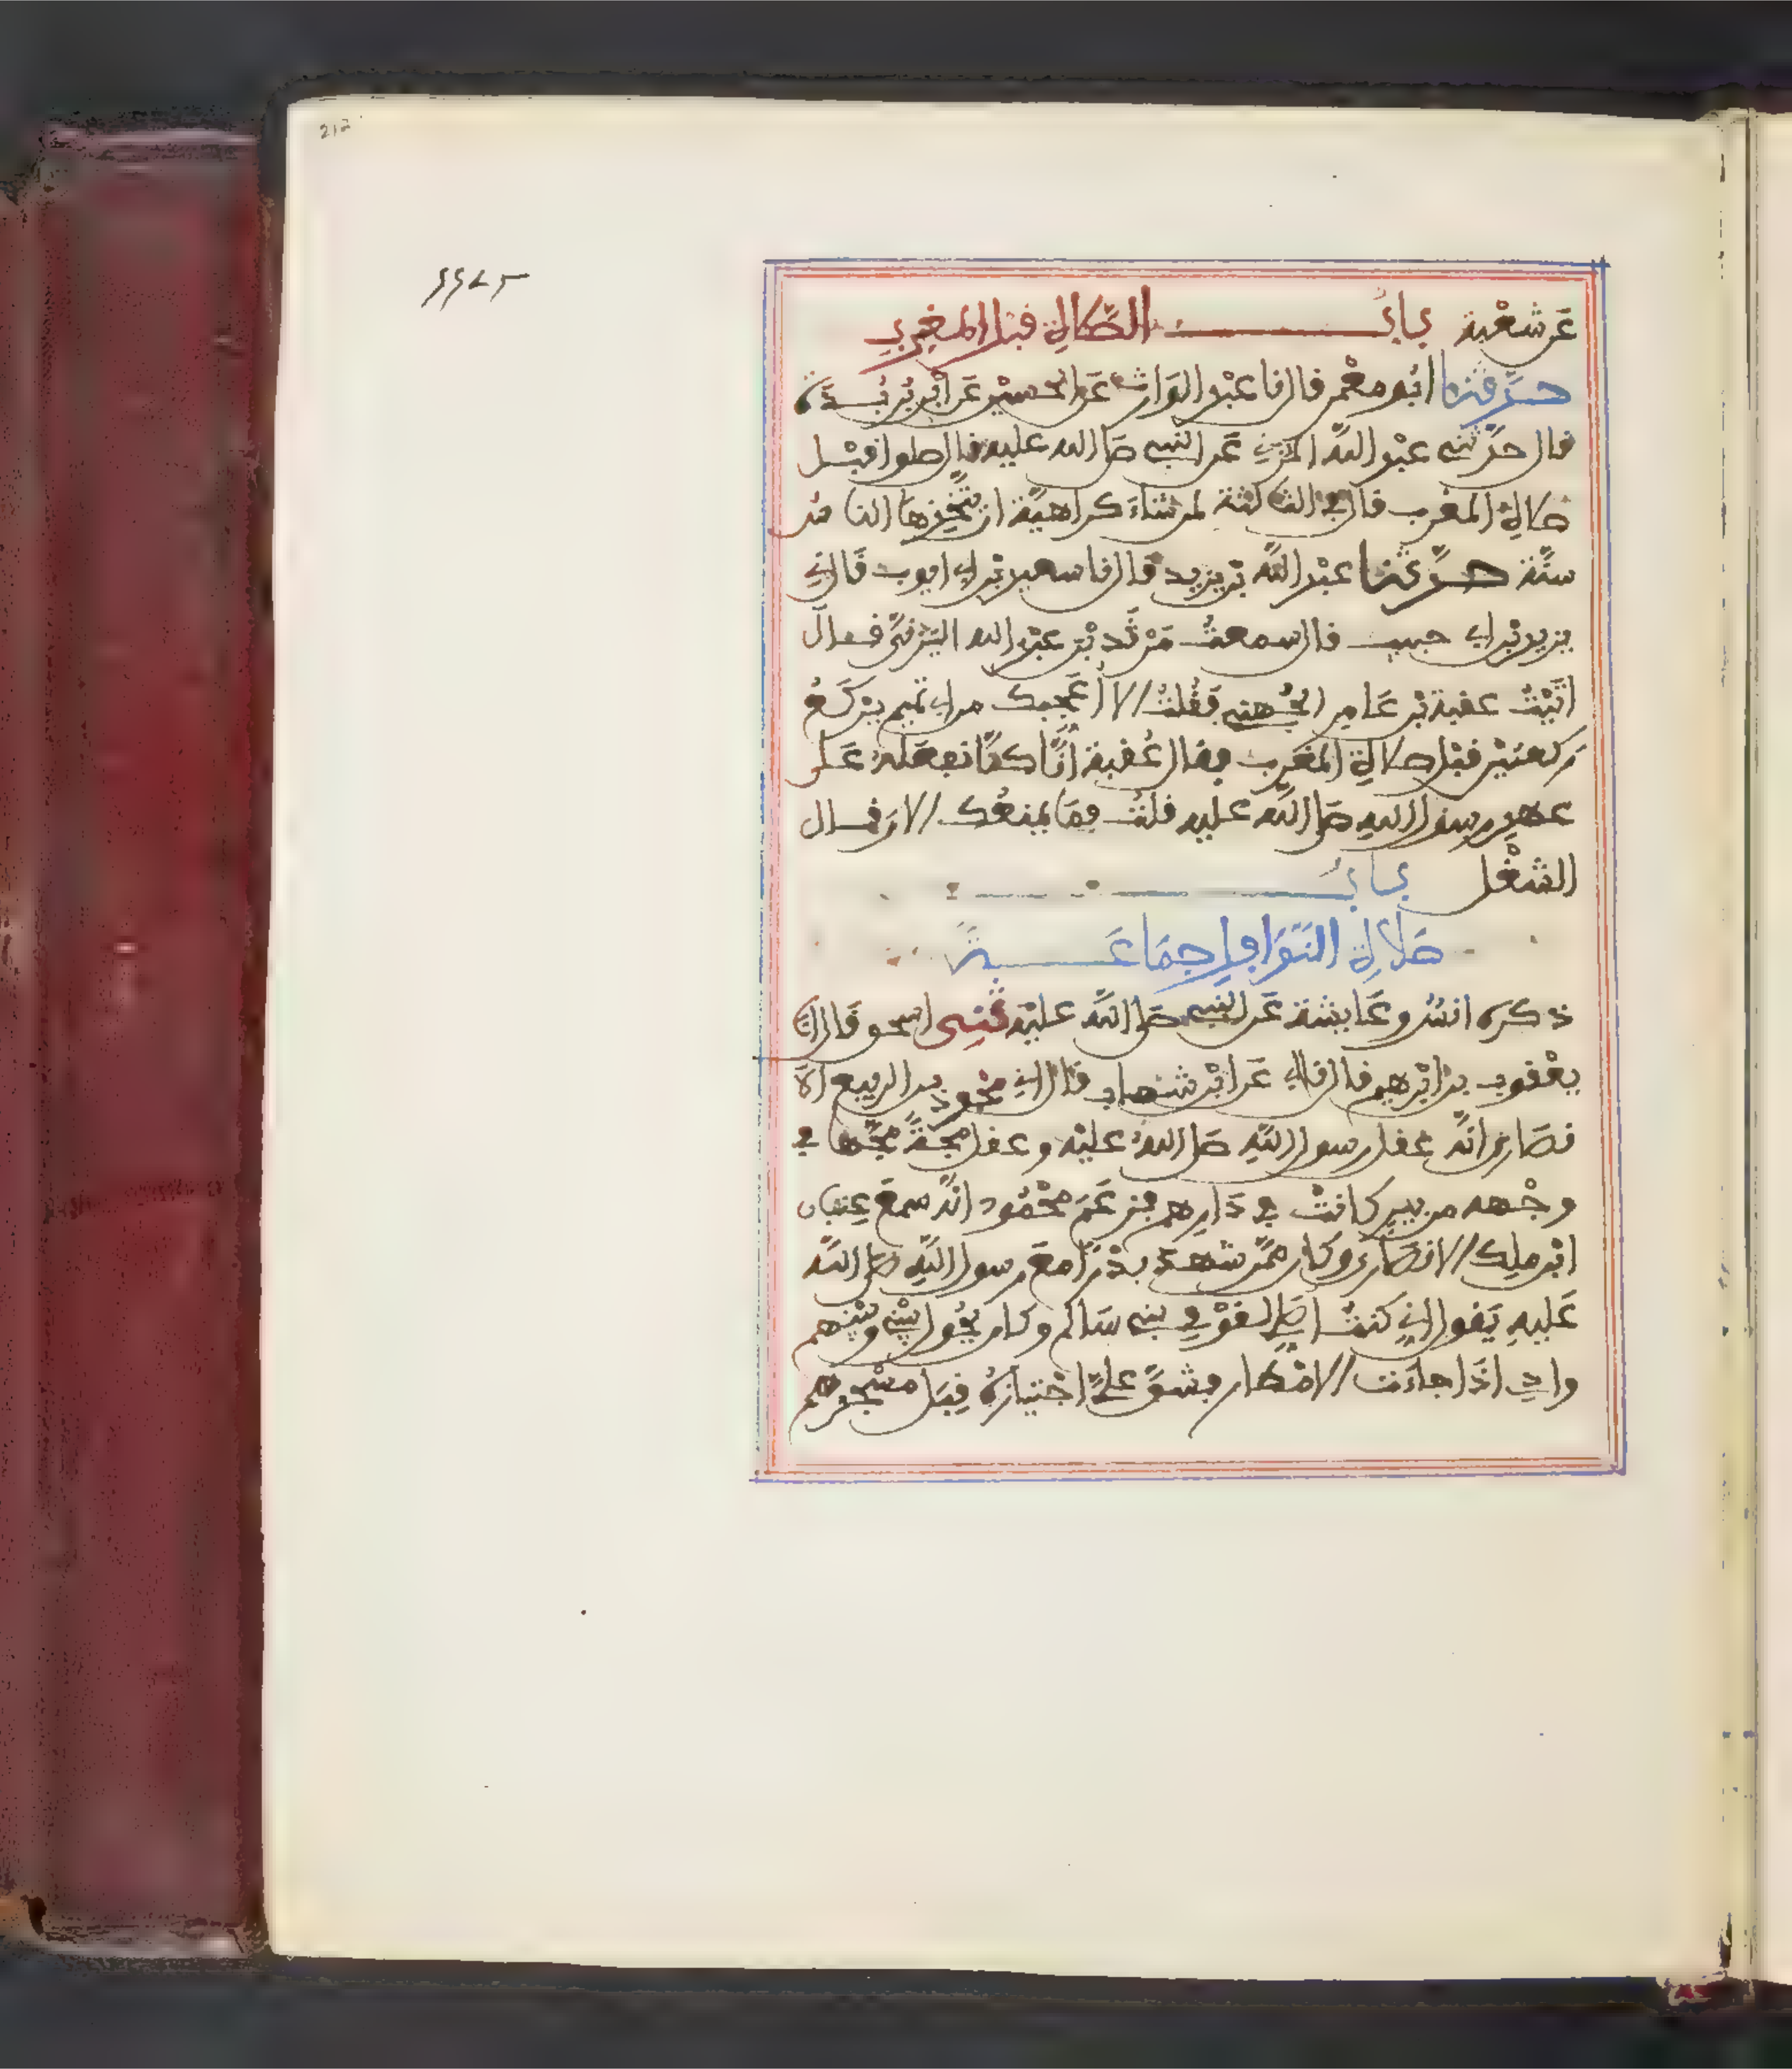 212
عَن شعْبة بابُ الصَّلاةِ قبل المغربِ
حدَّثنا ابُو معْمر قال نا عبْد الوَارث عَن الحسيْن عَن ابْن بُريْدةَ
قال حدَّثني عبْد اللهِ المزني عَن النبي صلى الله عليه قال صلوا قبْل
صلاة المغرب قال في الثالثة لمن شاءَ كراهيَة ان يتَّخِذها الناس
سنَّة حدَّثنا عبْد اللهِ بن يزيد قال نا سعيد بْن ابي ايوب قَال ني
يزيد بْن ابي حبيب قال سمعتُ مَرْثَد بْن عبْد الله اليَزنيَّ قال
اتَيْتُ عقبة بْن عَامِر الجُهني فَقُلتُ الا اُعَجِّبك من ابي تميم يرْكَعُ
رَكعتيْن قبْل صلاةِ المغرب فقال عُقبة اِنَّا كنَّا نفعَله عَلى
عهدِ رسول اللهِ صلى اللهُ عليه قلت فمَا يمنعُك الان قال
الشغْل بابُ
صَلاةِ النَّوَافِلِ جمَاعَةً
ذكره انسٌ وعَايشة عَن النبي صلى اللهُ عليْه ثني اسحق قَال انا
يعْقوب بن ابْرهيم قال نا ابي عَن ابْن شهاب قال اني محمود بن الربيع الا
نصَاري انهُ عقل رسول اللهِ صلى اللهُ عليْه وعقل مجَّةً مجَّها في
وجْهه من بيرٍ كانتْ في دَارِهم فزعَمَ محْمُود انهُ سمعَ عِتبان
ابْن ملِك الانصَاريَّ وكان ممَّن شهدَ بدْرًا معَ رسول اللهِ صلى اللهُ
عَليهِ يَقول اني كنتُ اصلي لقوْمي بني سَالم وكان يحُول بيْني وبيْنهم
وادٍ اذَا جاءَت الامْطار فيشقُّ عليَّ اجْتيازُهُ قِبَل مسْجدهم